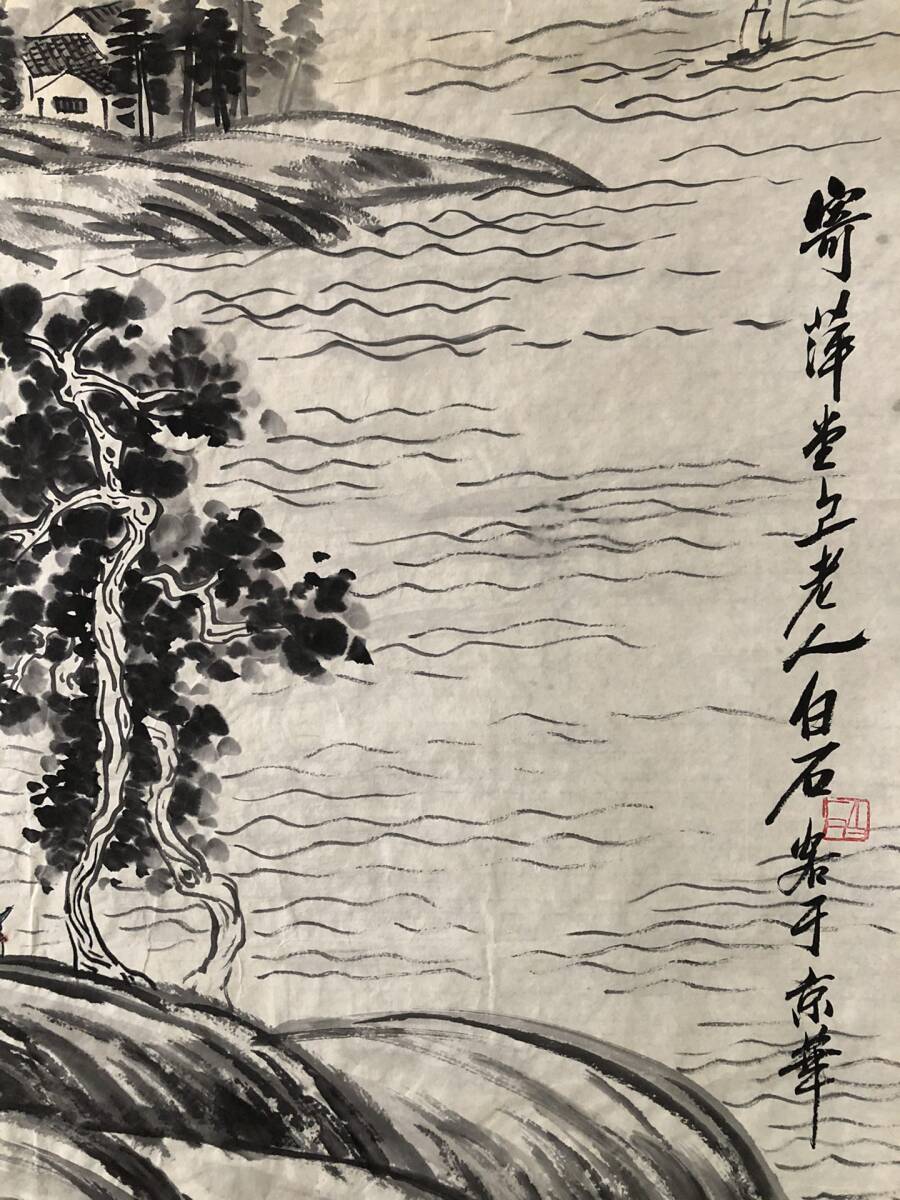 寄萍堂上老人白石客于京華